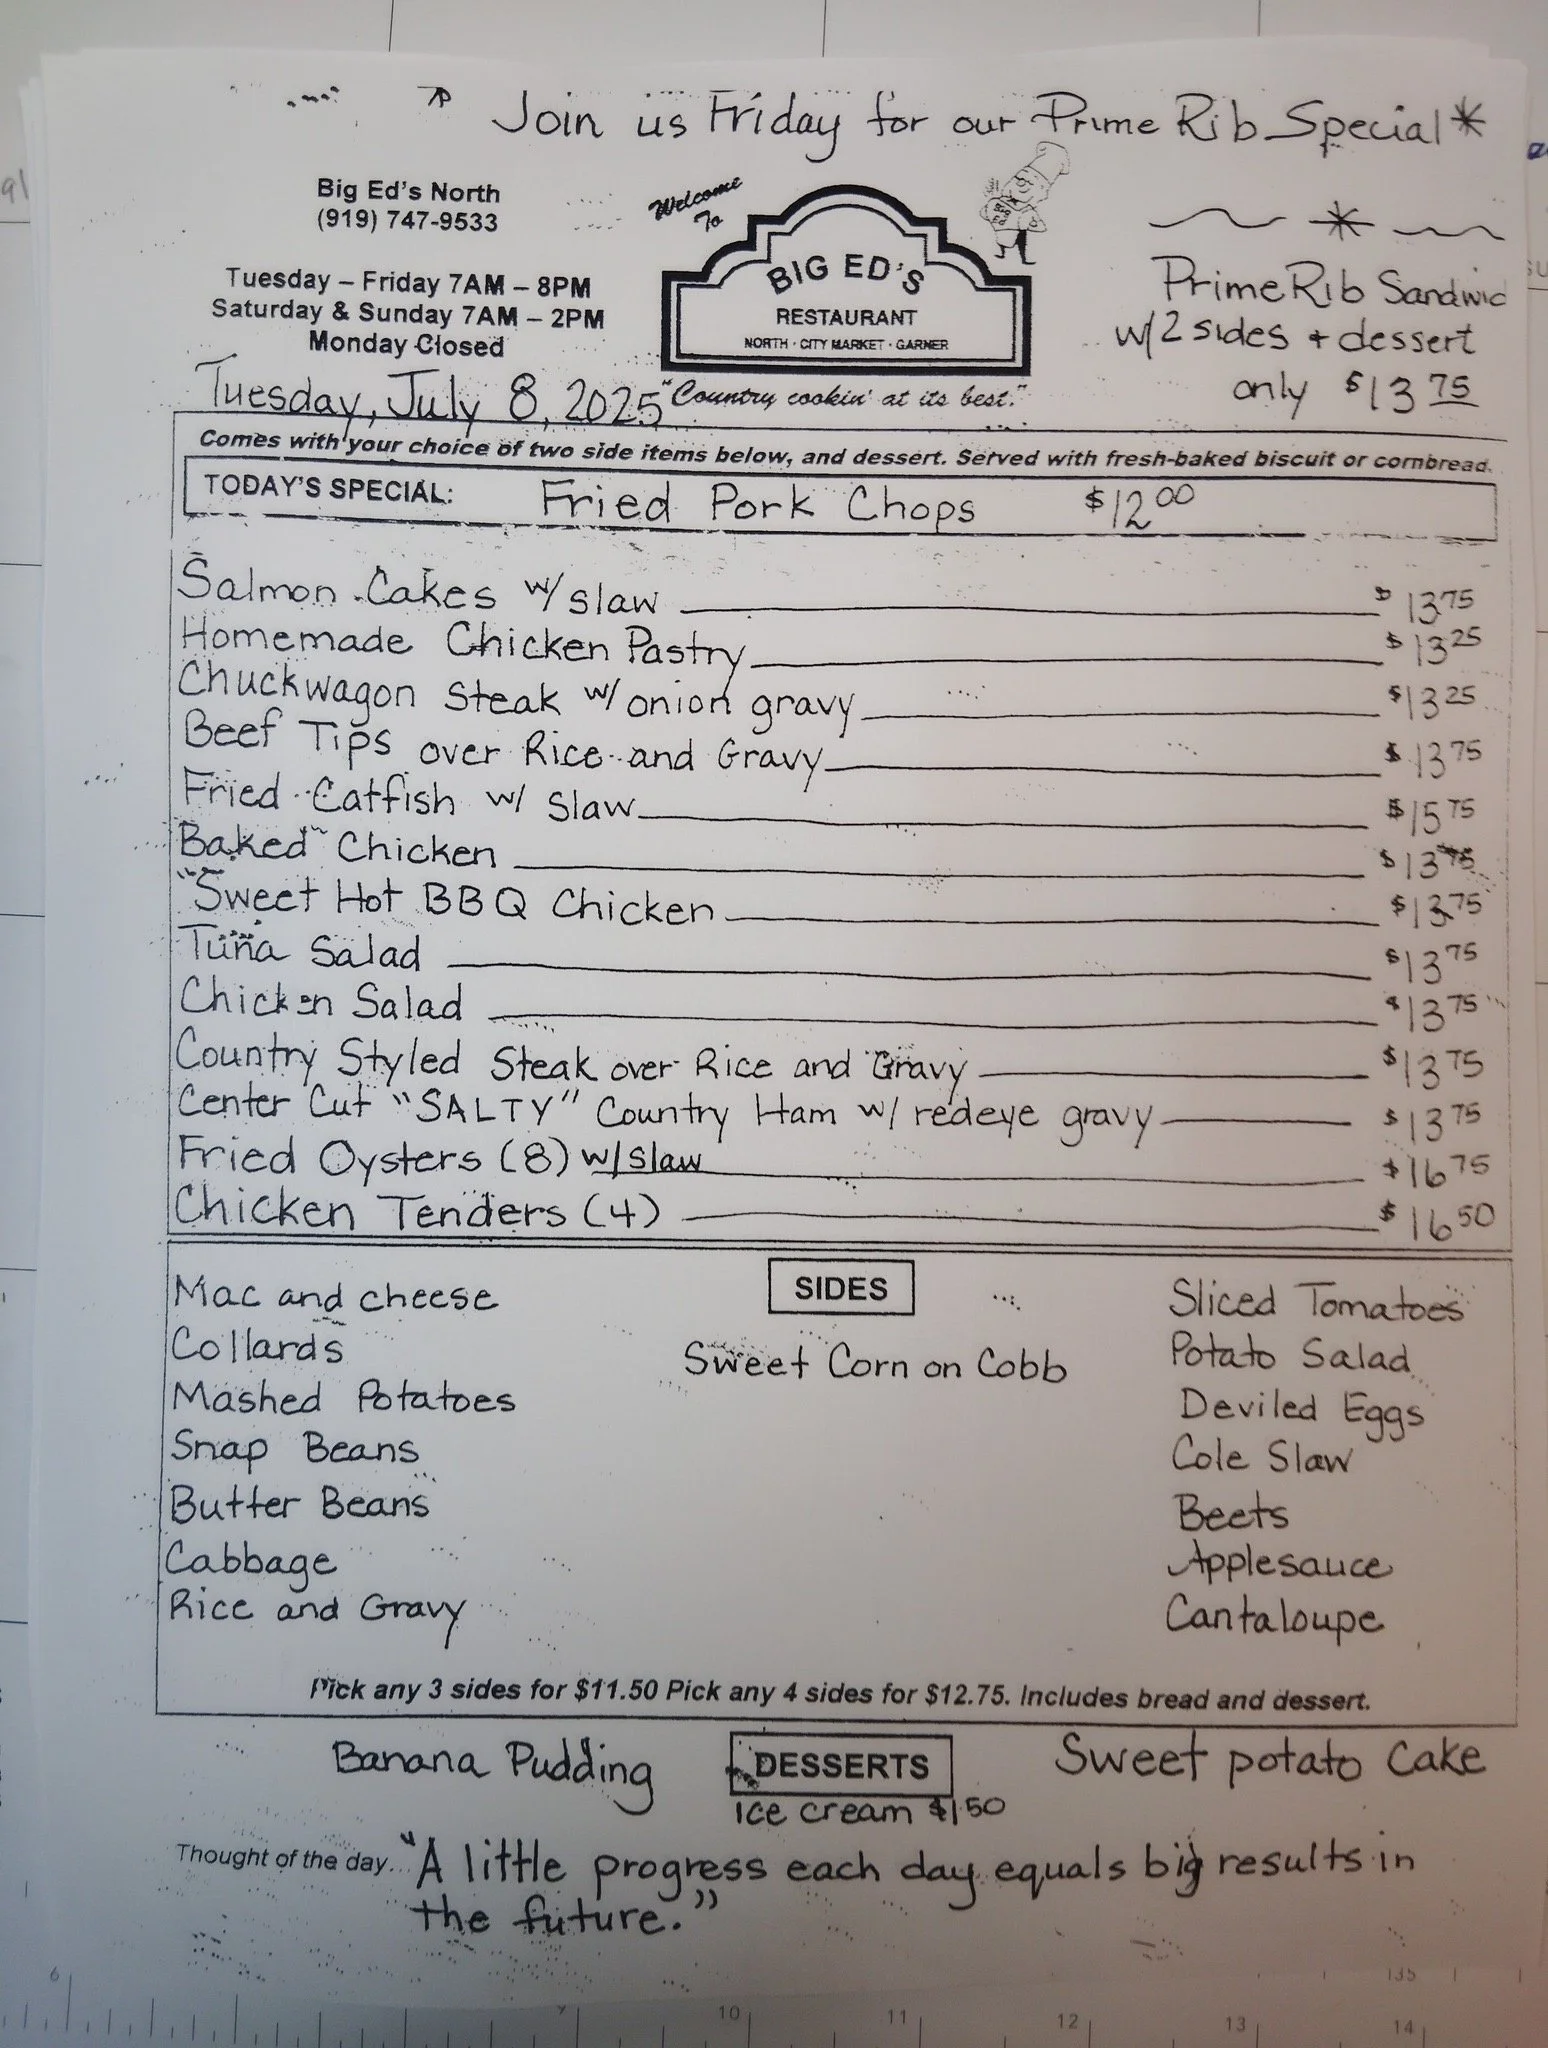 Join us Friday for our Prime Rib Special *
Big Ed's North
(919) 747-9533
Tuesday – Friday 7AM – 8PM
Saturday & Sunday 7AM – 2PM
Monday Closed
Tuesday, July 8, 2025
Welcome
To
BIG ED'S
RESTAURANT
NORTH · CITY MARKET · GARNER
"Country cookin' at its best."
Prime Rib Sandwic
w/2 sides + dessert
only $13 75
Comes with your choice of two side items below, and dessert. Served with fresh-baked biscuit or cornbread.
TODAY'S SPECIAL: Fried Pork Chops $12 00
Salmon Cakes w/ slaw $ 13 75
Homemade Chicken Pastry $13 25
Chuckwagon Steak w/ onion gravy $13 25
Beef Tips over Rice and Gravy $ 13 75
Fried Catfish w/ Slaw $15 75
Baked Chicken $13 75
Sweet Hot BBQ Chicken $13 75
Tuna Salad $13 75
Chicken Salad $13 75
Country Styled Steak over Rice and Gravy $13 75
Center Cut "SALTY" Country Ham w/ redeye gravy $ 13 75
Fried Oysters (8) w/slaw $16 75
Chicken Tenders (4) $ 16 50
SIDES
Mac and cheese
Collards
Mashed Potatoes
Snap Beans
Butter Beans
Cabbage
Rice and Gravy
Sweet Corn on Cobb
Sliced Tomatoes
Potato Salad
Deviled Eggs
Cole Slaw
Beets
Applesauce
Cantaloupe
Pick any 3 sides for $11.50 Pick any 4 sides for $12.75. Includes bread and dessert.
Banana Pudding DESSERTS Sweet potato Cake
Ice cream $1.50
Thought of the day... "A little progress each day equals big results in
the future."
6 10 11 12 13 14
135